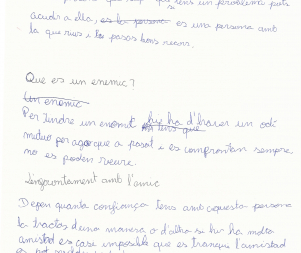 si tens un problema pots
acudir a ella, es la persona es una persona amb
la que rius i la passes bons
Que es un enemic?
Un enemic
Per tindre un enemic hi ha d'haver un odi
mutuo per algo que a pasat i es confrontan sempre,
no es poden veure.
L'enfrontament amb l'amic
Depen quanta confiança tens amb aquesta persona
la tractas d'una manera o d'altra si hi ha molta
amistad es casi imposible que es tranqui l'amistad